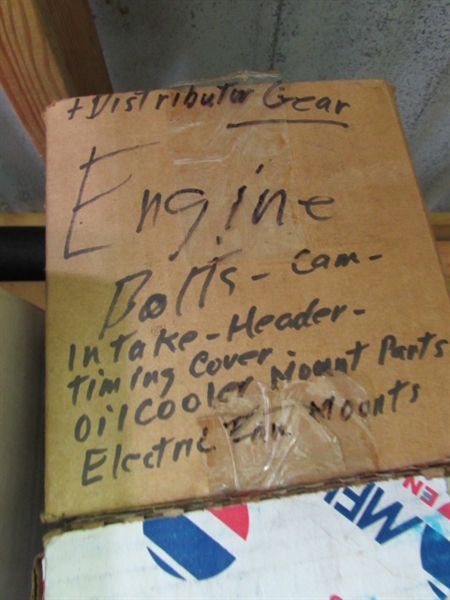 + Distributor Gear
Engine
Bolts - Cam -
Intake - Header -
Timing Cover -
Oil Cooler Mount Parts
Electric Fan Mounts